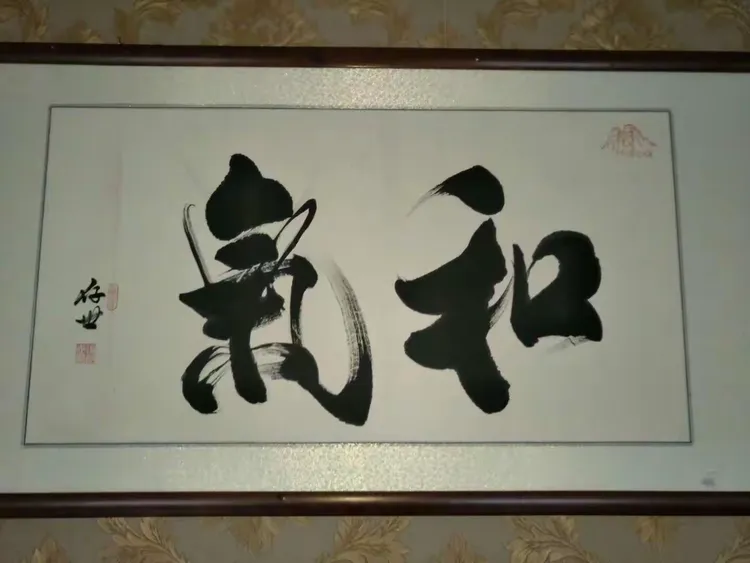 和氣
存世